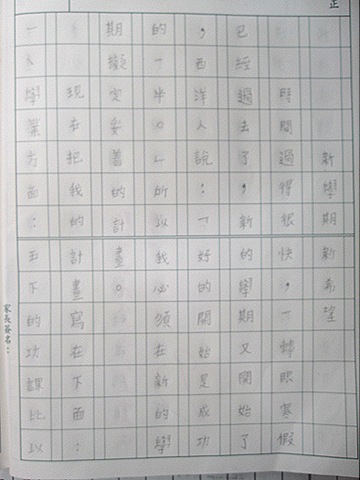 正
新學期新希望
時間過得很快，一轉眼寒假
已經過去了，新的學期又開始了
，西洋人說：「好的開始是成功
的一半。」所以我必須在新的學
期擬定妥善的計畫。
現在把我的計畫寫在下面：
一、學業方面：五下的功課比以
家長簽名：